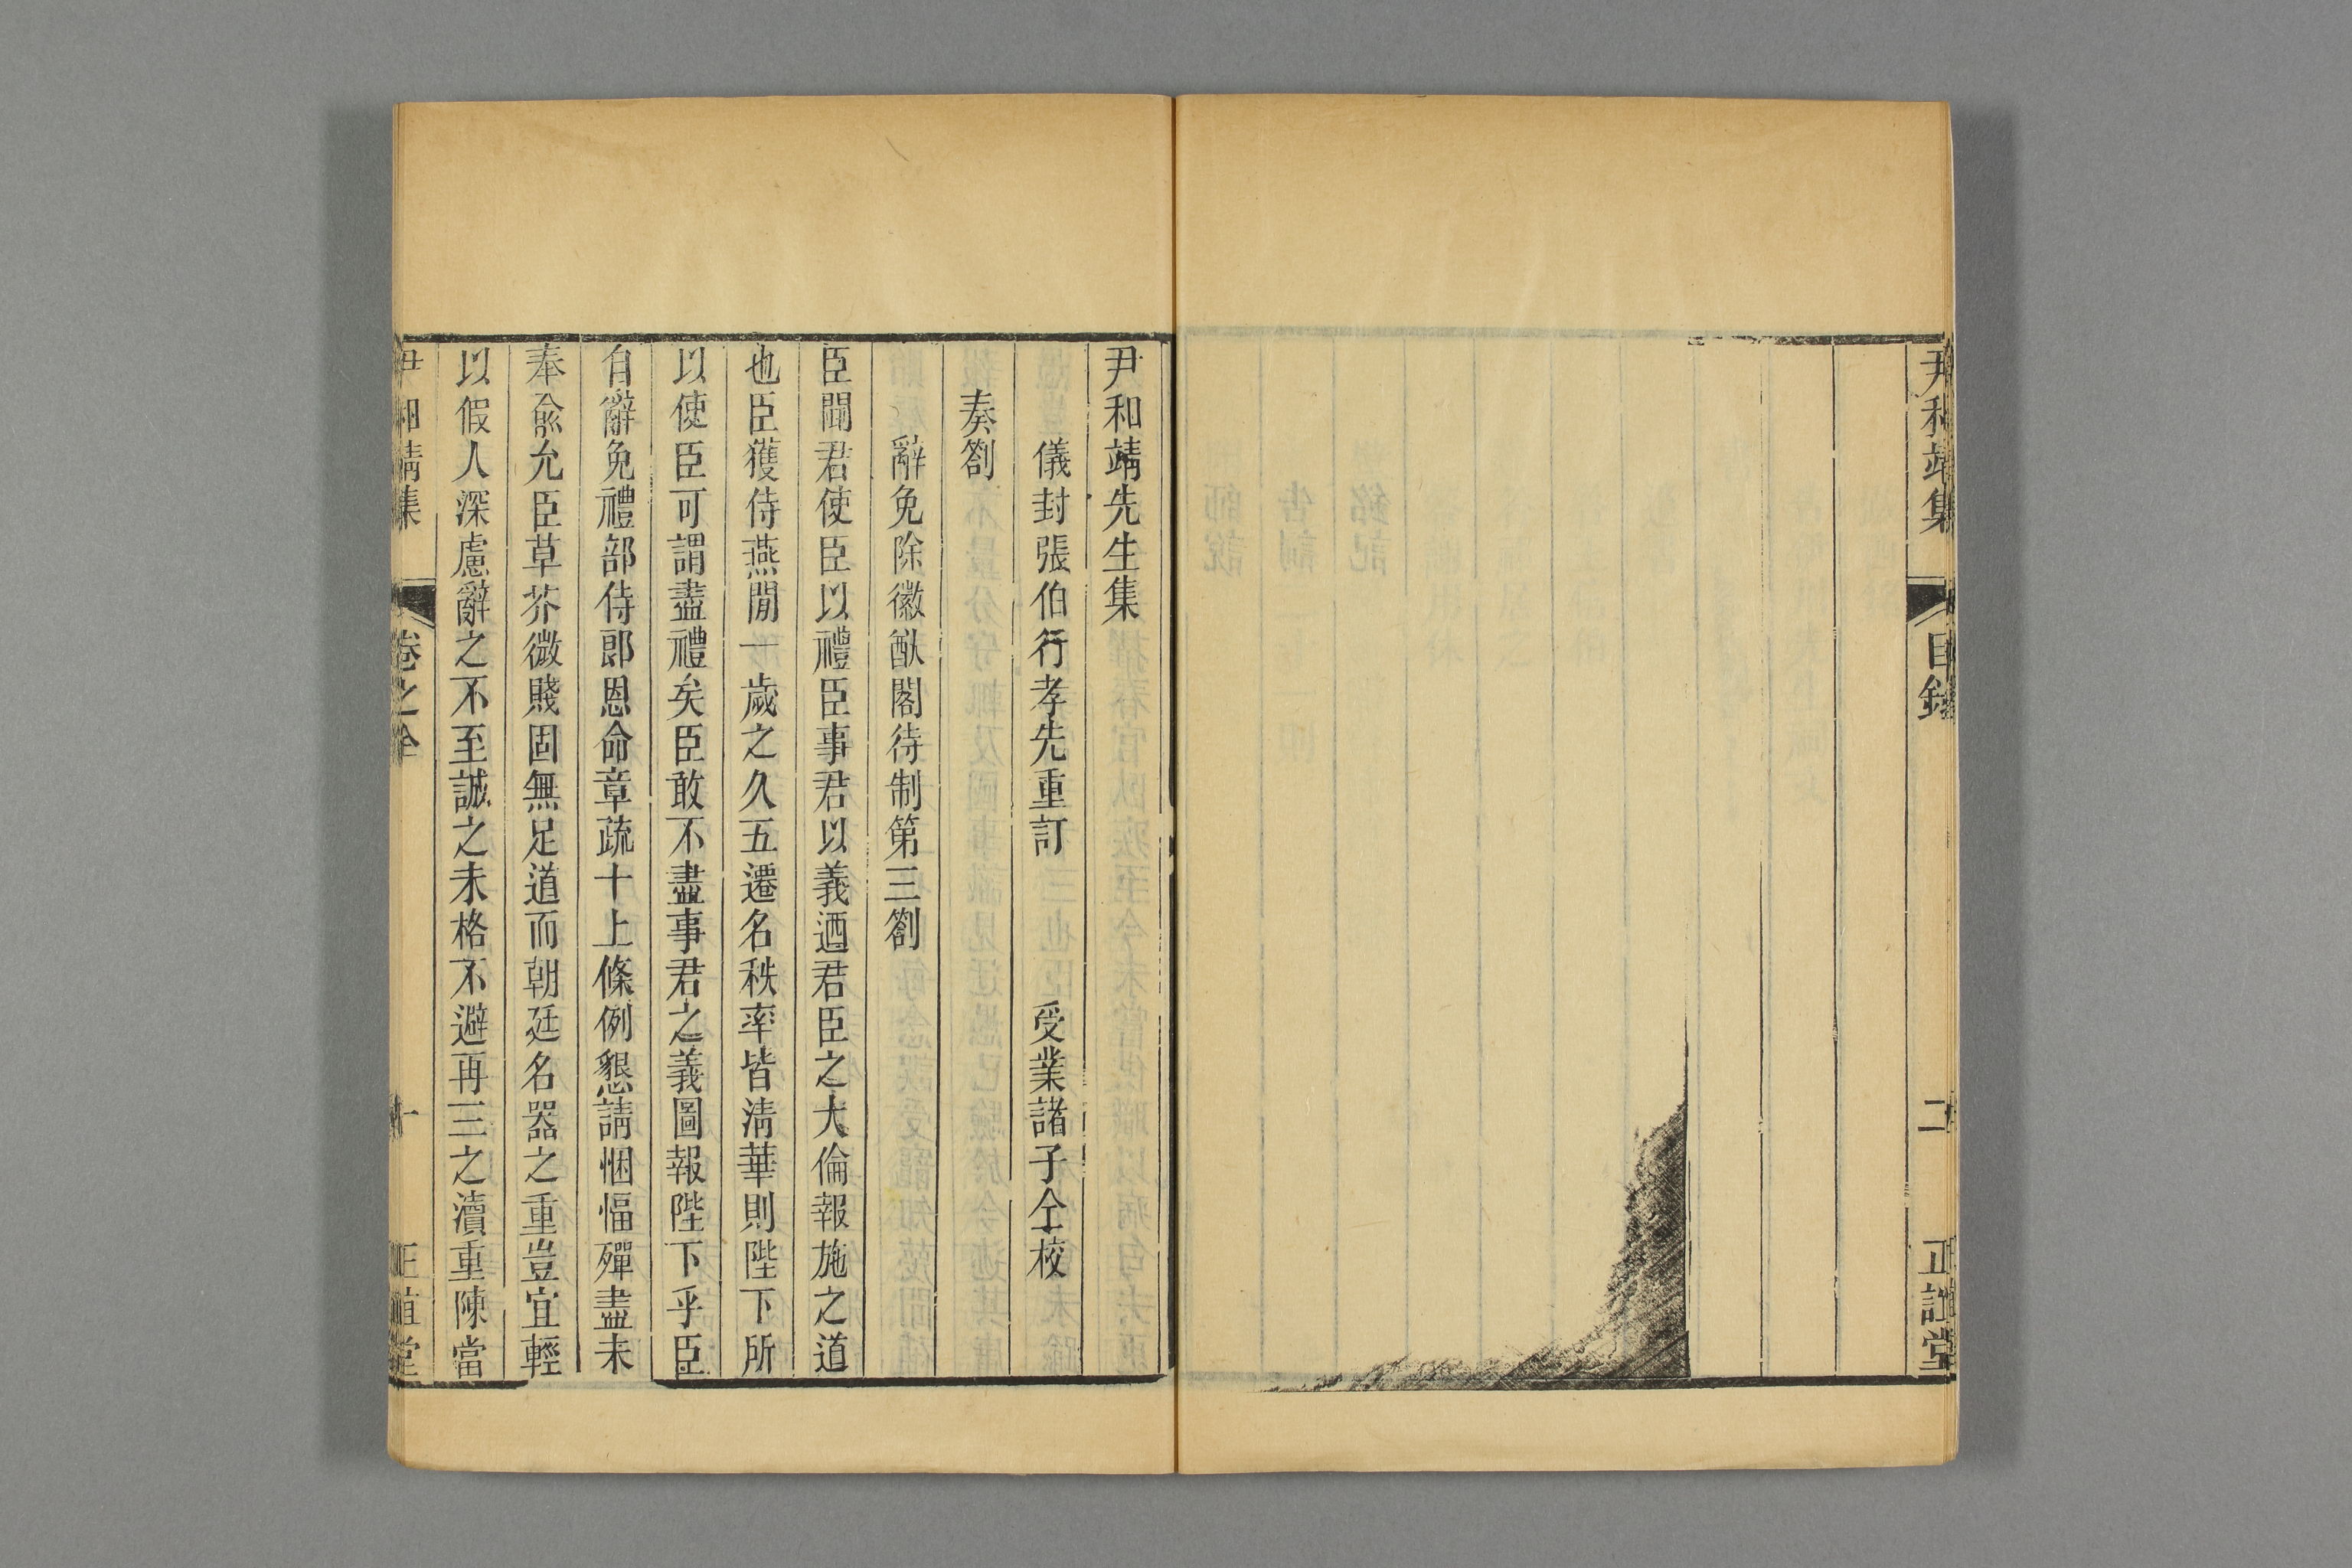 尹和靖集　目錄　二　正誼堂
尹和靖先生集
儀封張伯行孝先重訂　受業諸子仝校
奏劄
辭免除徽猷閣待制第三劄
臣聞君使臣以禮臣事君以義迺君臣之大倫報施之道
也臣獲侍燕閒一歲之久五遷名秩率皆清華則陛下所
以使臣可謂盡禮矣臣敢不盡事君之義圖報陛下乎臣
自辭免禮部侍郎恩命章疏十上條例懇請悃愊殫盡未
奉兪允臣草芥微賤固無足道而朝廷名器之重豈宜輕
以假人深慮辭之不至誠之未格不避再三之瀆重陳當
尹和靖集　卷之全　一　正誼堂